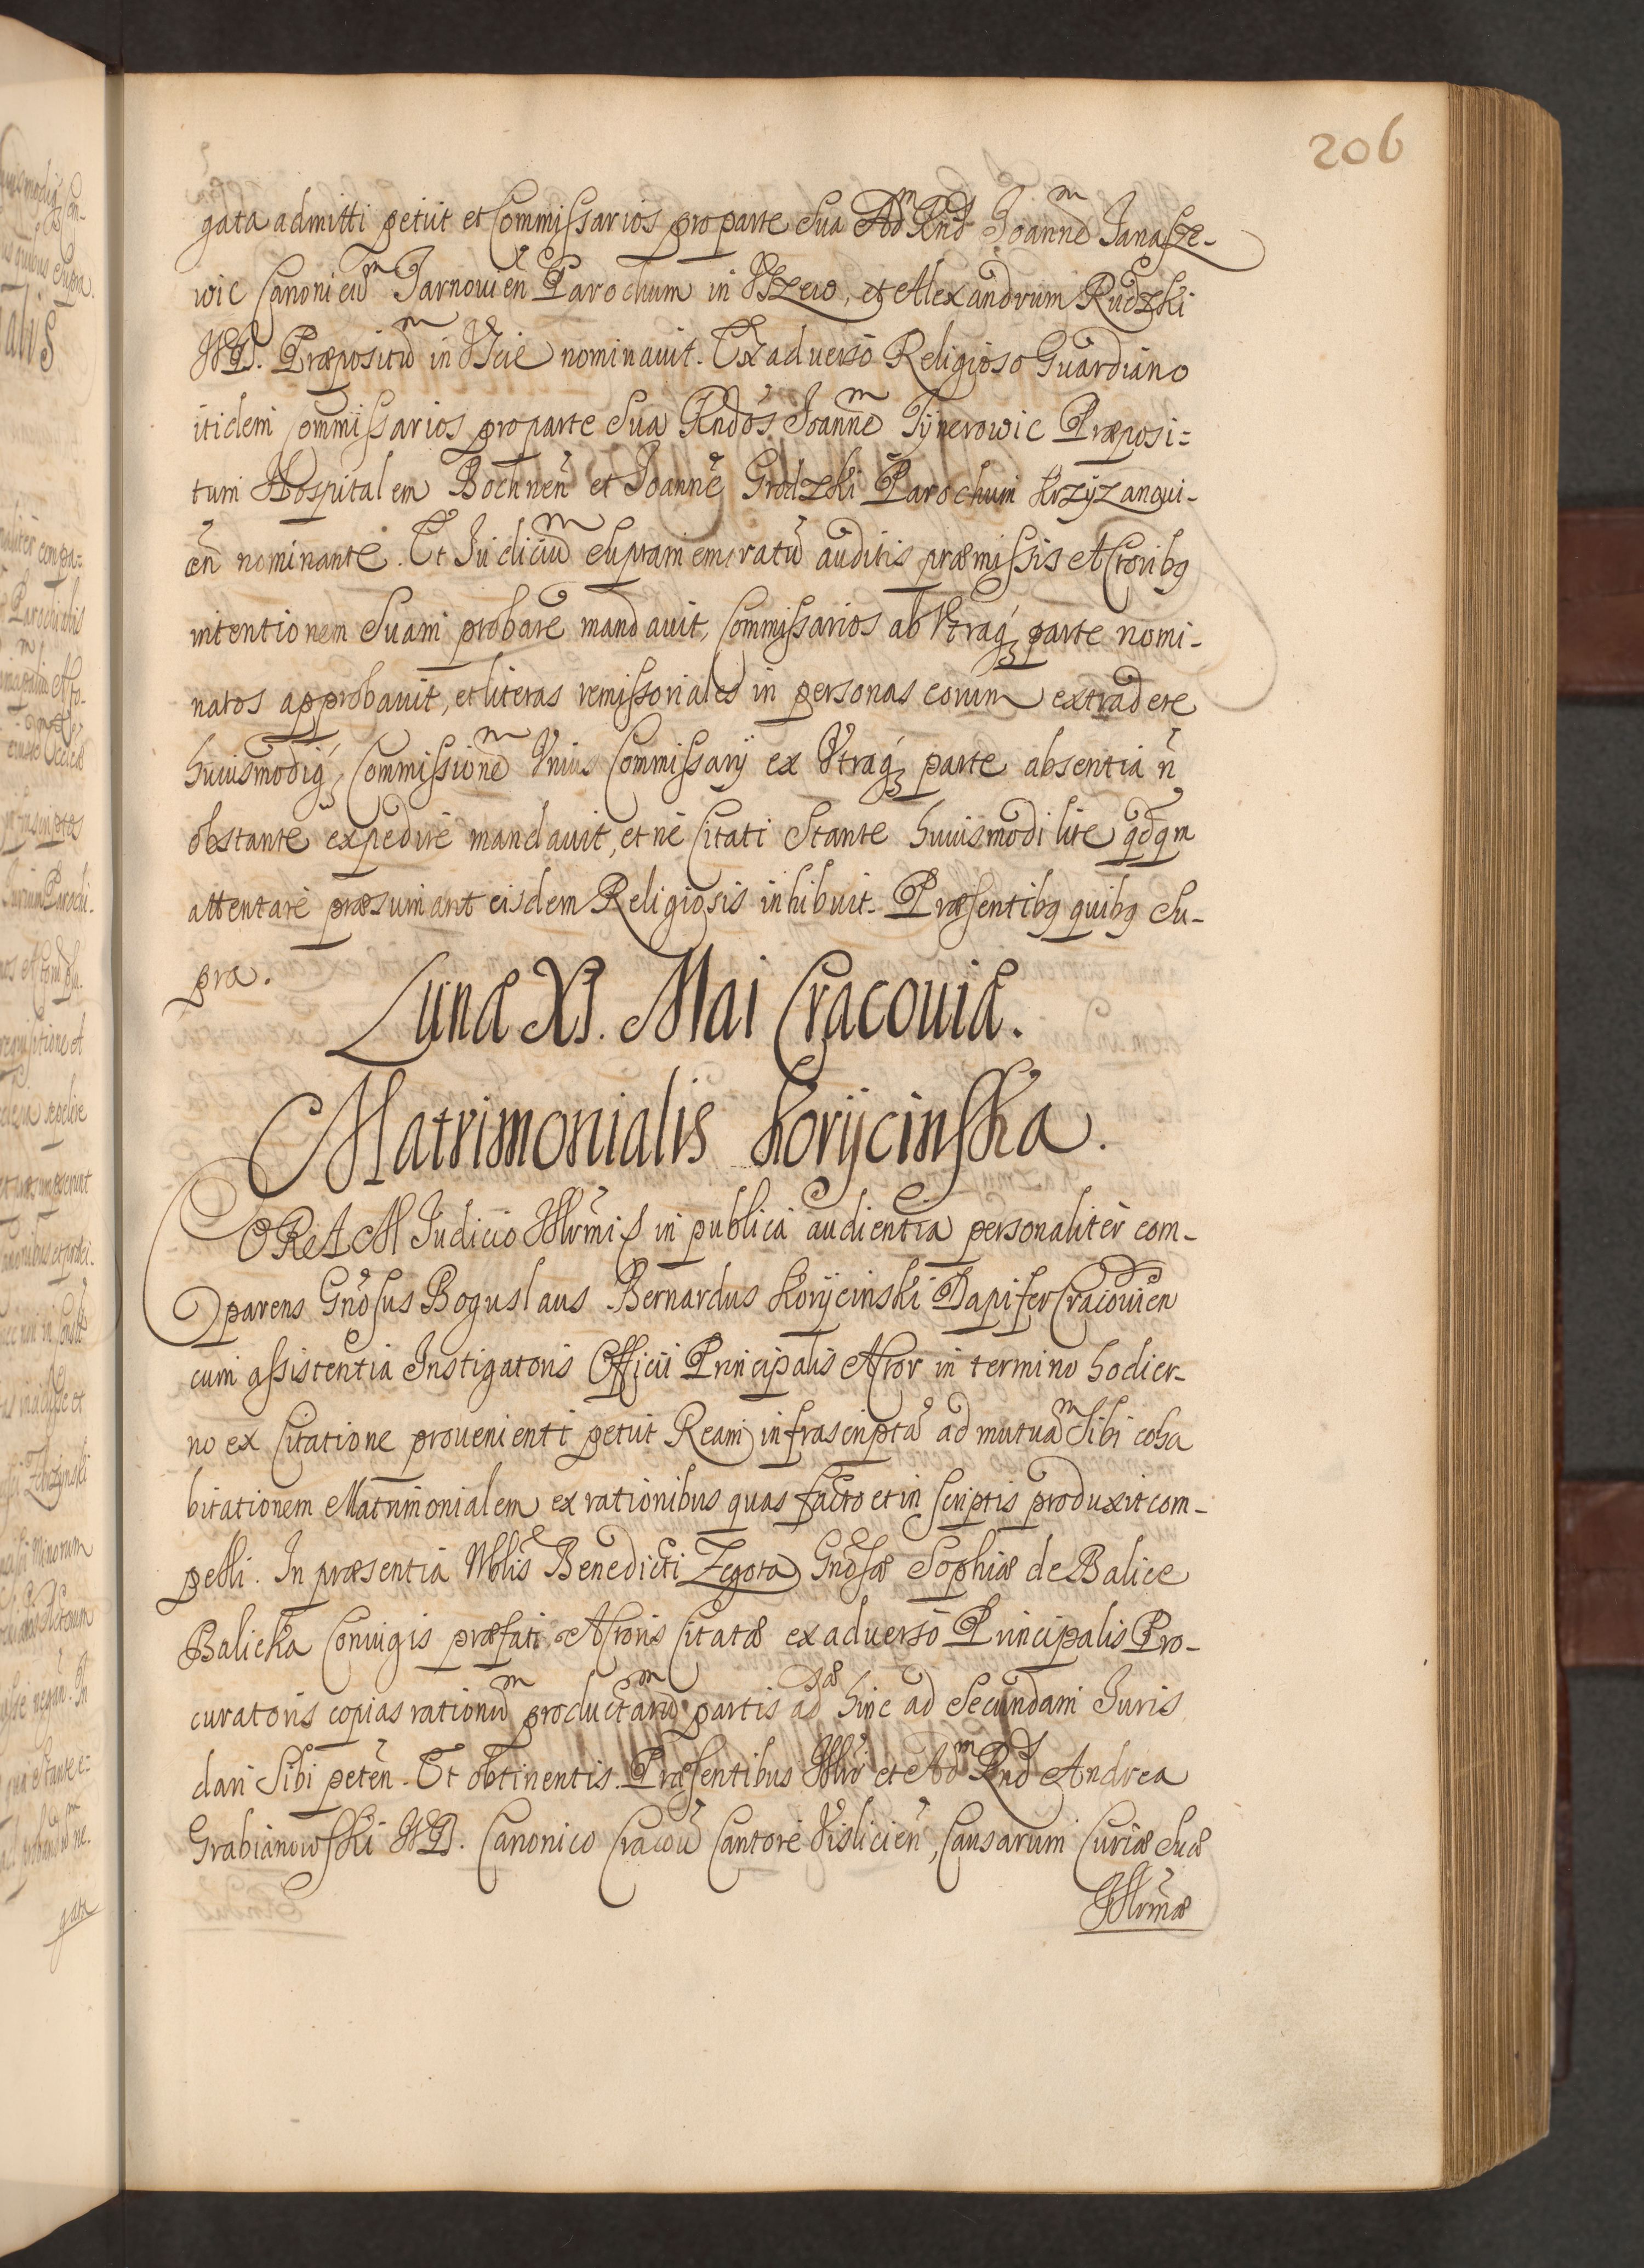 206
gata admitti petiit et Commissarios pro parte sua Adm Rnd Joannem Janasze-
wic Canonicum Tarnovien Parochum in Uszew, et Alexandrum Rudzki
Præpositum in Uscie nominavit. Ex adverso Religioso Guardiano
itidem Commissarios pro parte sua Rndos Joannem Tynerowic Præposi-
tum Hospitalem Bochnen et Joanne Grodzki Parochum Krzyzanovi-
en nominante. Et Judicium supramemoratum auditis præmissis Actoribq
intentionem Suam probare mandavit, Commissarios ab Utraq parte nomi-
natos approbavit, et literas remissoriales in personas eorum extradere
huiusmodiq Commissionem Unius Commissarij ex Utraq parte absentia n
obstante expedire mandavit, et ne Citati Stante huiusmodi lite qdqm
attentare præsumant eisdem Religiosis inhibuit. Præsentibq quibq Su-
pra.
Lunæ XI. Mai Cracoviæ.
Matrimonialis Koryciński
CORAM Judicio Illrmi S in publica audientia personaliter com-
parens Gnosus Boguslaus Bernardus Korycinski Dapifer Cracovien
cum assistentia Instigatoris Officii Principalis Actor in termino hodier-
no ex Citatione provenienti petiit Ream infrascriptam ad mutuam Sibi coha
bitationem Matrimonialem ex rationibus quas facto et in scriptis produxit com-
pelli. In præsentia Nblis Benedicti Zegota Gnosæ Sophiæ de Balice
Balicka Coniugis præfati Actoris Citatæ ex adverso Principalis Pro-
curatoris copias rationum productarum partis adsæ hinc ad Secundam Juris
dari Sibi peten. Et obtinentis. Præsentibus Illri et Adm Rnd Andrea
Grabianowski Canonico Cracov Cantore Vislicien, Causarum Curiæ Suæ
Illrmæ